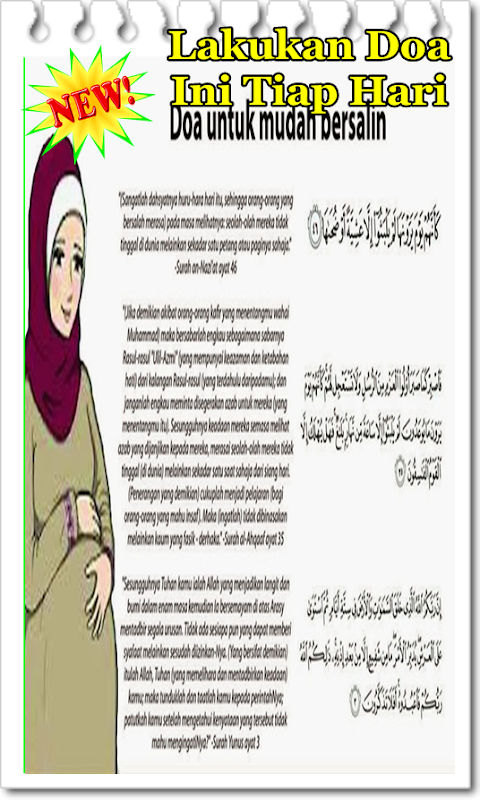 Lakukan Doa
Ini Tiap Hari
NEW!
Doa untuk mudah bersalin
"(Sangatlah dahsyatnya huru-hara hari itu, sehingga orang-orang yang
bersalah merasa) pada masa melihatnya: seolah-olah mereka tidak
tinggal di dunia melainkan sekadar satu petang atau paginya sahaja."
-Surah an-Nazi'at ayat 46
كَأَنَّهُمْ يَوْمَ يَرَوْنَهَا لَمْ يَلْبَثُوٓا۟ إِلَّا عَشِيَّةً أَوْ ضُحَىٰهَا ٤٦
"(Jika demikian akibat orang-orang kafir yang menentangmu wahai
Muhammad) maka bersabarlah engkau sebagaimana sabarnya
Rasul-rasul "Ulil-Azmi" (yang mempunyai keazaman dan ketabahan
hati) dari kalangan Rasul-rasul (yang terdahulu daripadamu); dan
janganlah engkau meminta disegerakan azab untuk mereka (yang
menentangmu itu). Sesungguhnya keadaan mereka semasa melihat
azab yang dijanjikan kepada mereka, merasai seolah-olah mereka tidak
tinggal (di dunia) melainkan sekadar satu saat sahaja dari siang hari.
(Penerangan yang demikian) cukuplah menjadi pelajaran (bagi
orang-orang yang mahu insaf). Maka (ingatlah) tidak dibinasakan
melainkan kaum yang fasik - derhaka."-Surah al-Ahqaaf ayat 35
فَٱصْبِرْ كَمَا صَبَرَ أُو۟لُوا۟ ٱلْعَزْمِ مِنَ ٱلرُّسُلِ وَلَا تَسْتَعْجِل لَّهُمْ كَأَنَّهُمْ يَوْمَ
يَرَوْنَ مَا يُوعَدُونَ لَمْ يَلْبَثُوٓا۟ إِلَّا سَاعَةً مِّن نَّهَارٍۭ بَلَٰغٌ فَهَلْ يُهْلَكُ إِلَّا
ٱلْقَوْمُ ٱلْفَٰسِقُونَ ٣٥
"Sesungguhnya Tuhan kamu ialah Allah yang menjadikan langit dan
bumi dalam enam masa kemudian Ia bersemayam di atas Arasy
mentadbir segala urusan. Tidak ada sesiapa pun yang dapat memberi
syafaat melainkan sesudah diizinkan-Nya. (Yang bersifat demikian)
itulah Allah, Tuhan (yang memelihara dan mentadbirkan keadaan)
kamu; maka tunduklah dan taatlah kamu kepada perintahNya;
patutkah kamu setelah mengetahui kenyataan yang tersebut tidak
mahu mengingatiNya?" -Surah Yunus ayat 3
إِنَّ رَبَّكُمُ ٱللَّهُ ٱلَّذِى خَلَقَ ٱلسَّمَٰوَٰتِ وَٱلْأَرْضَ فِى سِتَّةِ أَيَّامٍ ثُمَّ ٱسْتَوَىٰ
عَلَى ٱلْعَرْشِ يُدَبِّرُ ٱلْأَمْرَ مَا مِن شَفِيعٍ إِلَّا مِنۢ بَعْدِ إِذْنِهِۦ ذَٰلِكُمُ ٱللَّهُ
رَبُّكُمْ فَٱعْبُدُوهُ أَفَلَا تَذَكَّرُونَ ٣